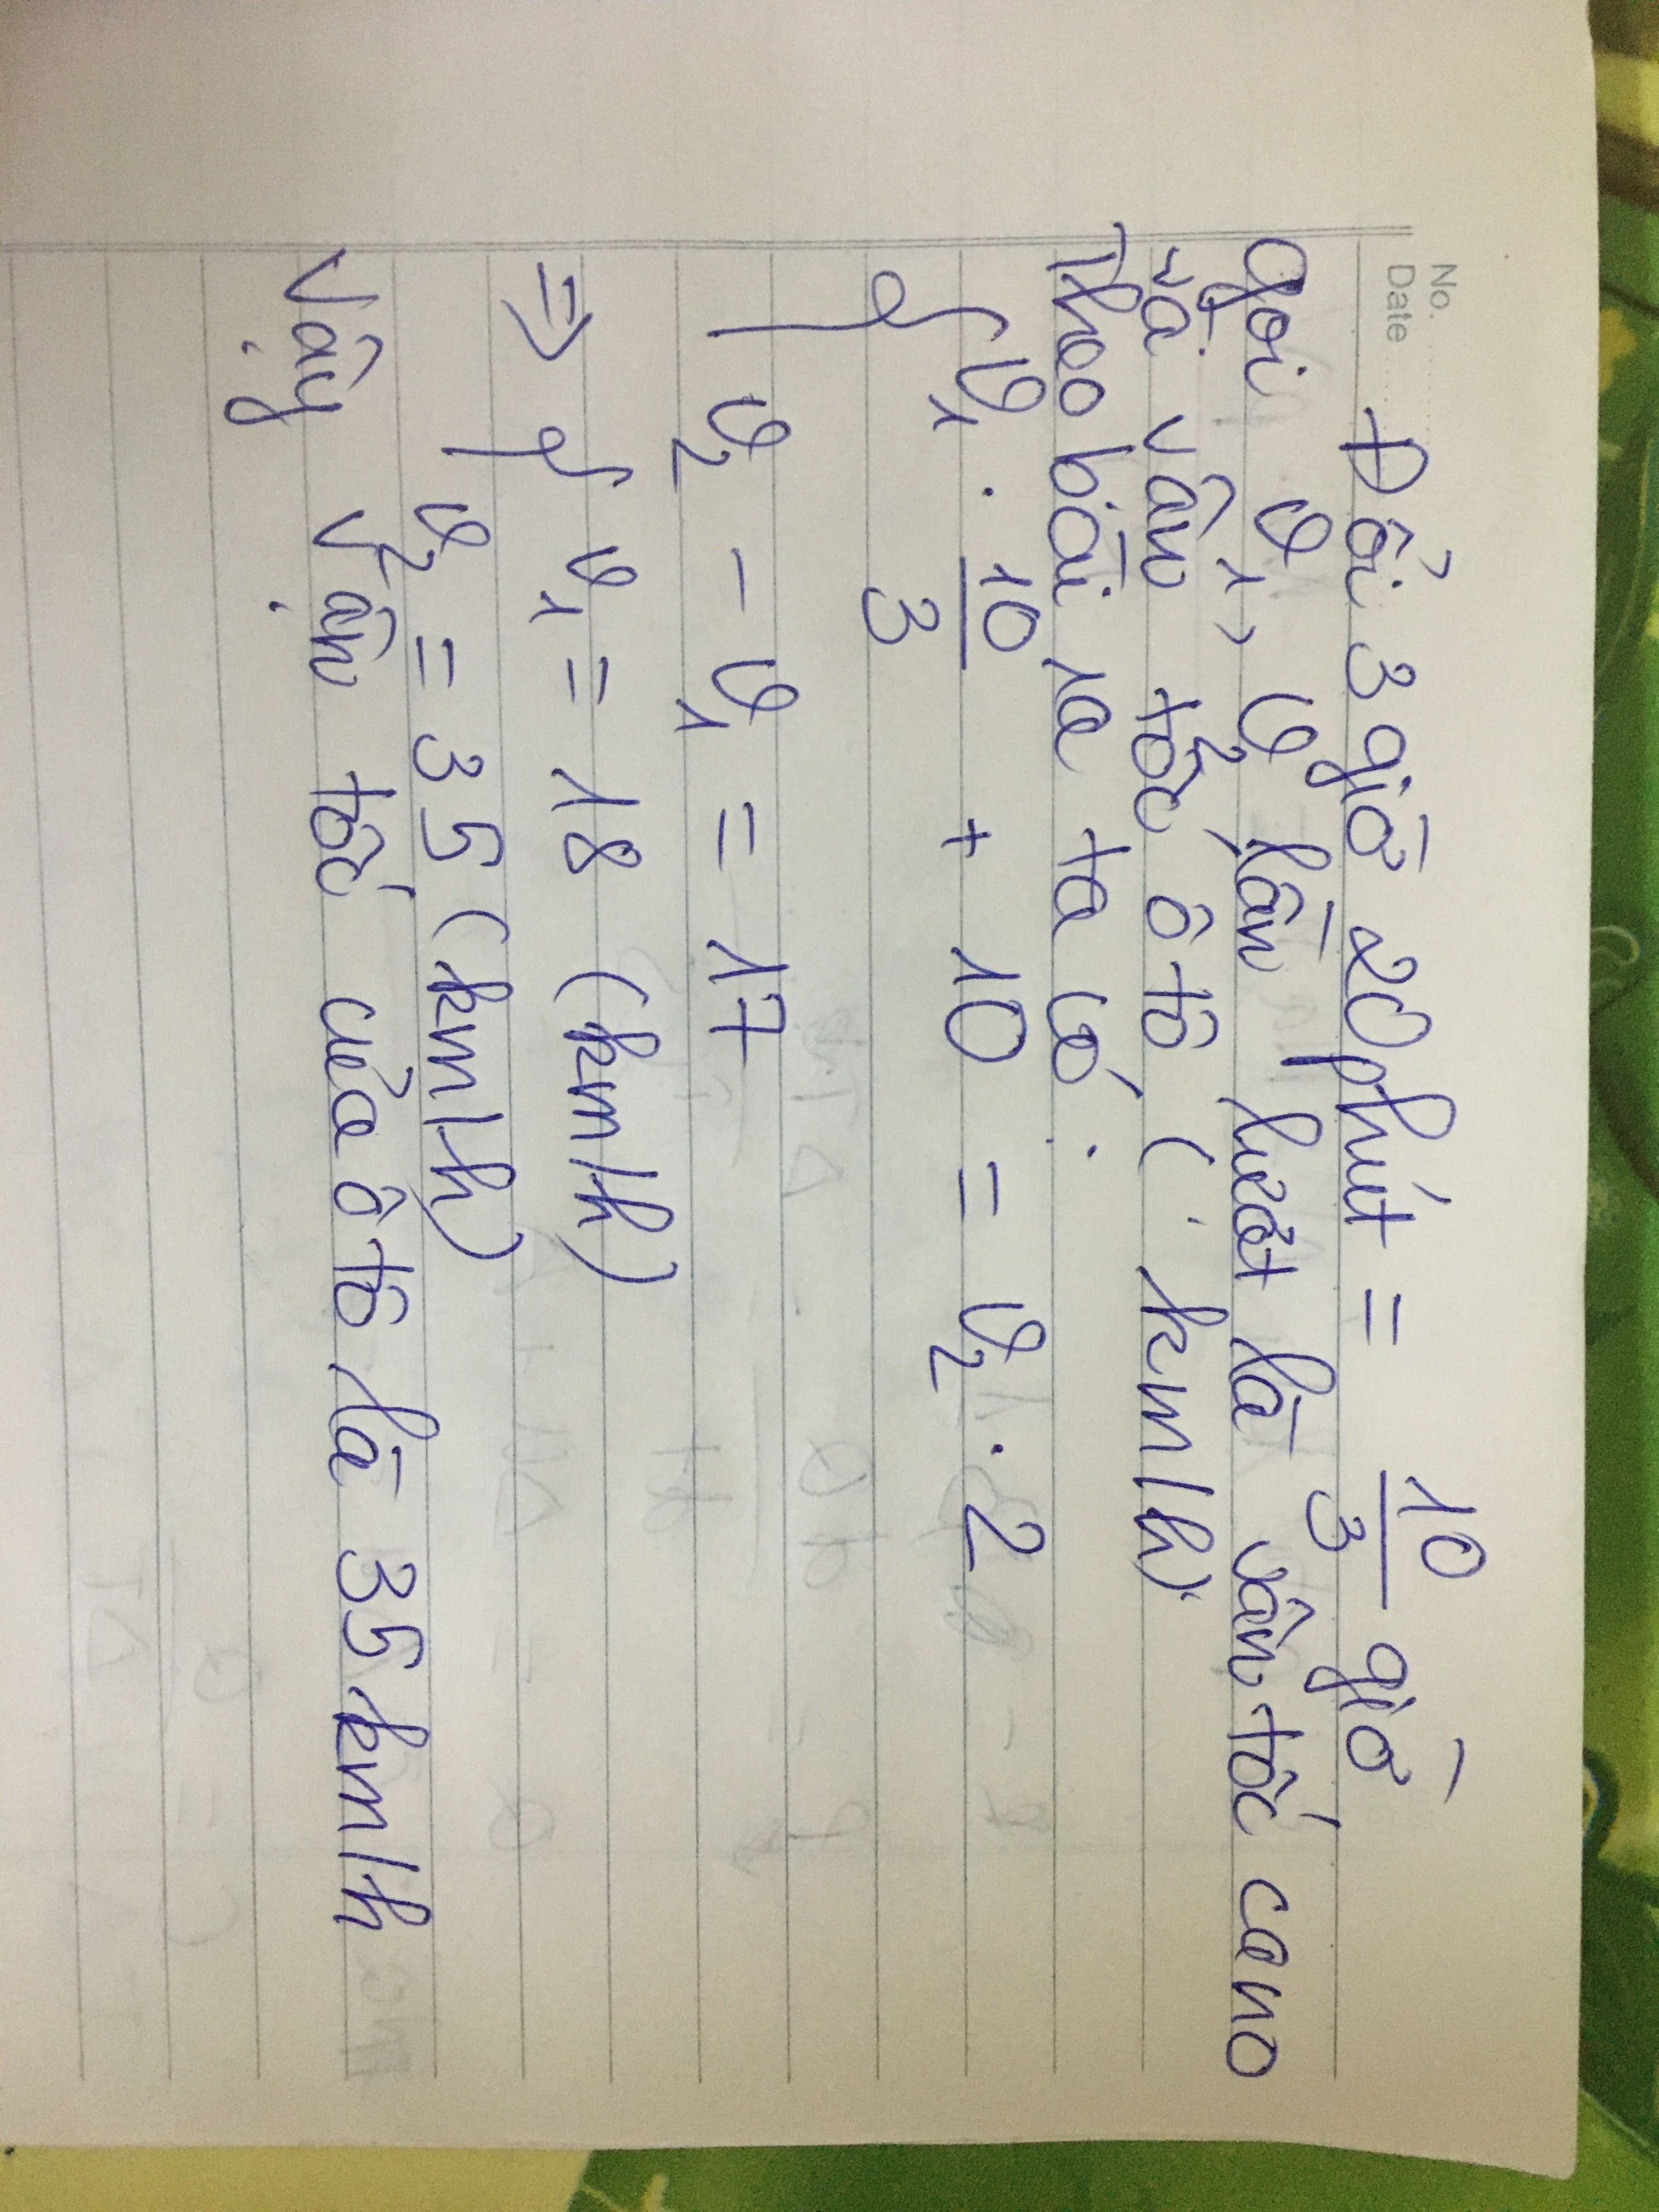 No.
Date
Đổi 3 giờ 20 phút = 10/3 giờ
Gọi v₁, v₂ lần lượt là vận tốc cano
và vận tốc ô tô (km/h)
Theo bài ra ta có:
{ v₁ . 10/3 + 10 = v₂ . 2
v₂ - v₁ = 17
=> { v₁ = 18 (km/h)
v₂ = 35 (km/h)
Vậy vận tốc của ô tô là 35 km/h